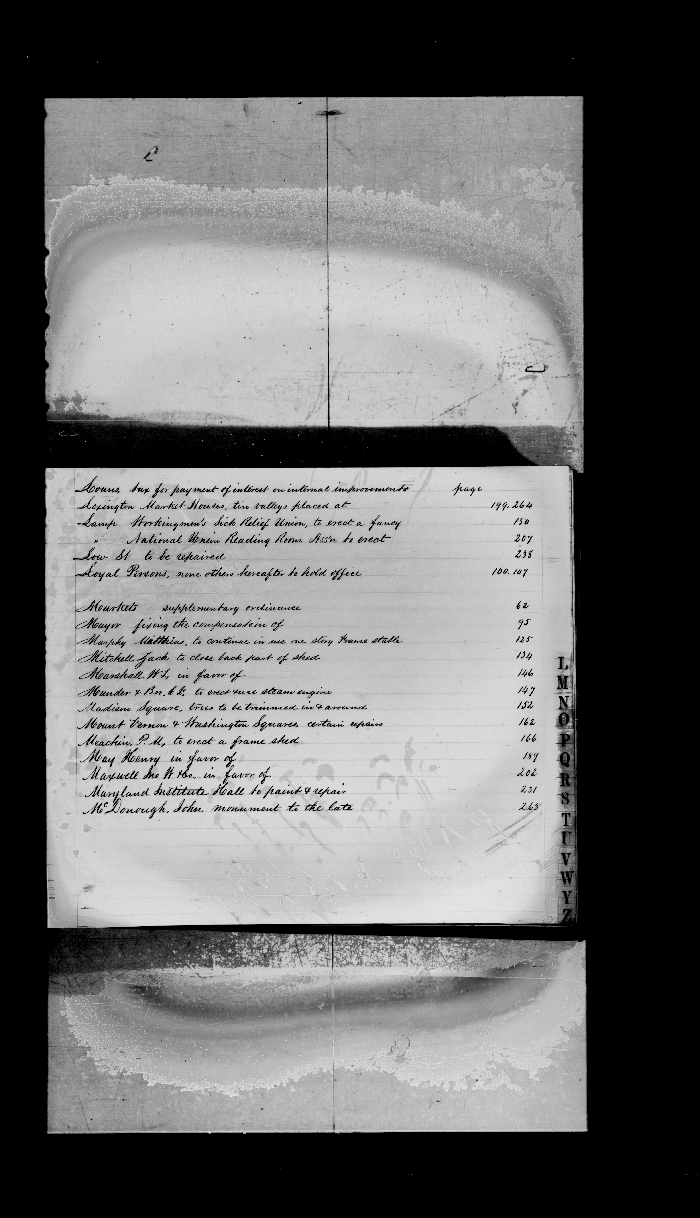 L
Loans, tax for payment of interest on internal improvements page
Lexington Market Houses, tin valleys placed at 199.264
Lamp Workingmen's Sick Relief Union, to erect a fancy 150
" National Union Reading Room Ass'n to erect 207
Low St to be repaired 238
Loyal Persons, none others hereafter to hold office 100.107
Markets supplementary ordinance 62
Mayor fixing the compensation of 95
Murphy Matthias, to continue in use one story frame stable 125
Mitchell Jack to close back part of shed 134
Marshall W L, in favor of 146
Munder & Bro. to erect & use steam engine 147
Madison Square, trees to be trimmed in & around 152
Mount Vernon & Washington Squares, certain repairs 162
Meachin, P. M, to erect a frame shed 166
May Henry in favor of 187
Maxwell Jno W & Co. in favor of 202
Maryland Institute Hall to paint & repair 231
McDonough, John, monument to the late 268
L
M
N
O
P
Q
R
S
T
U
V
W
Y
Z